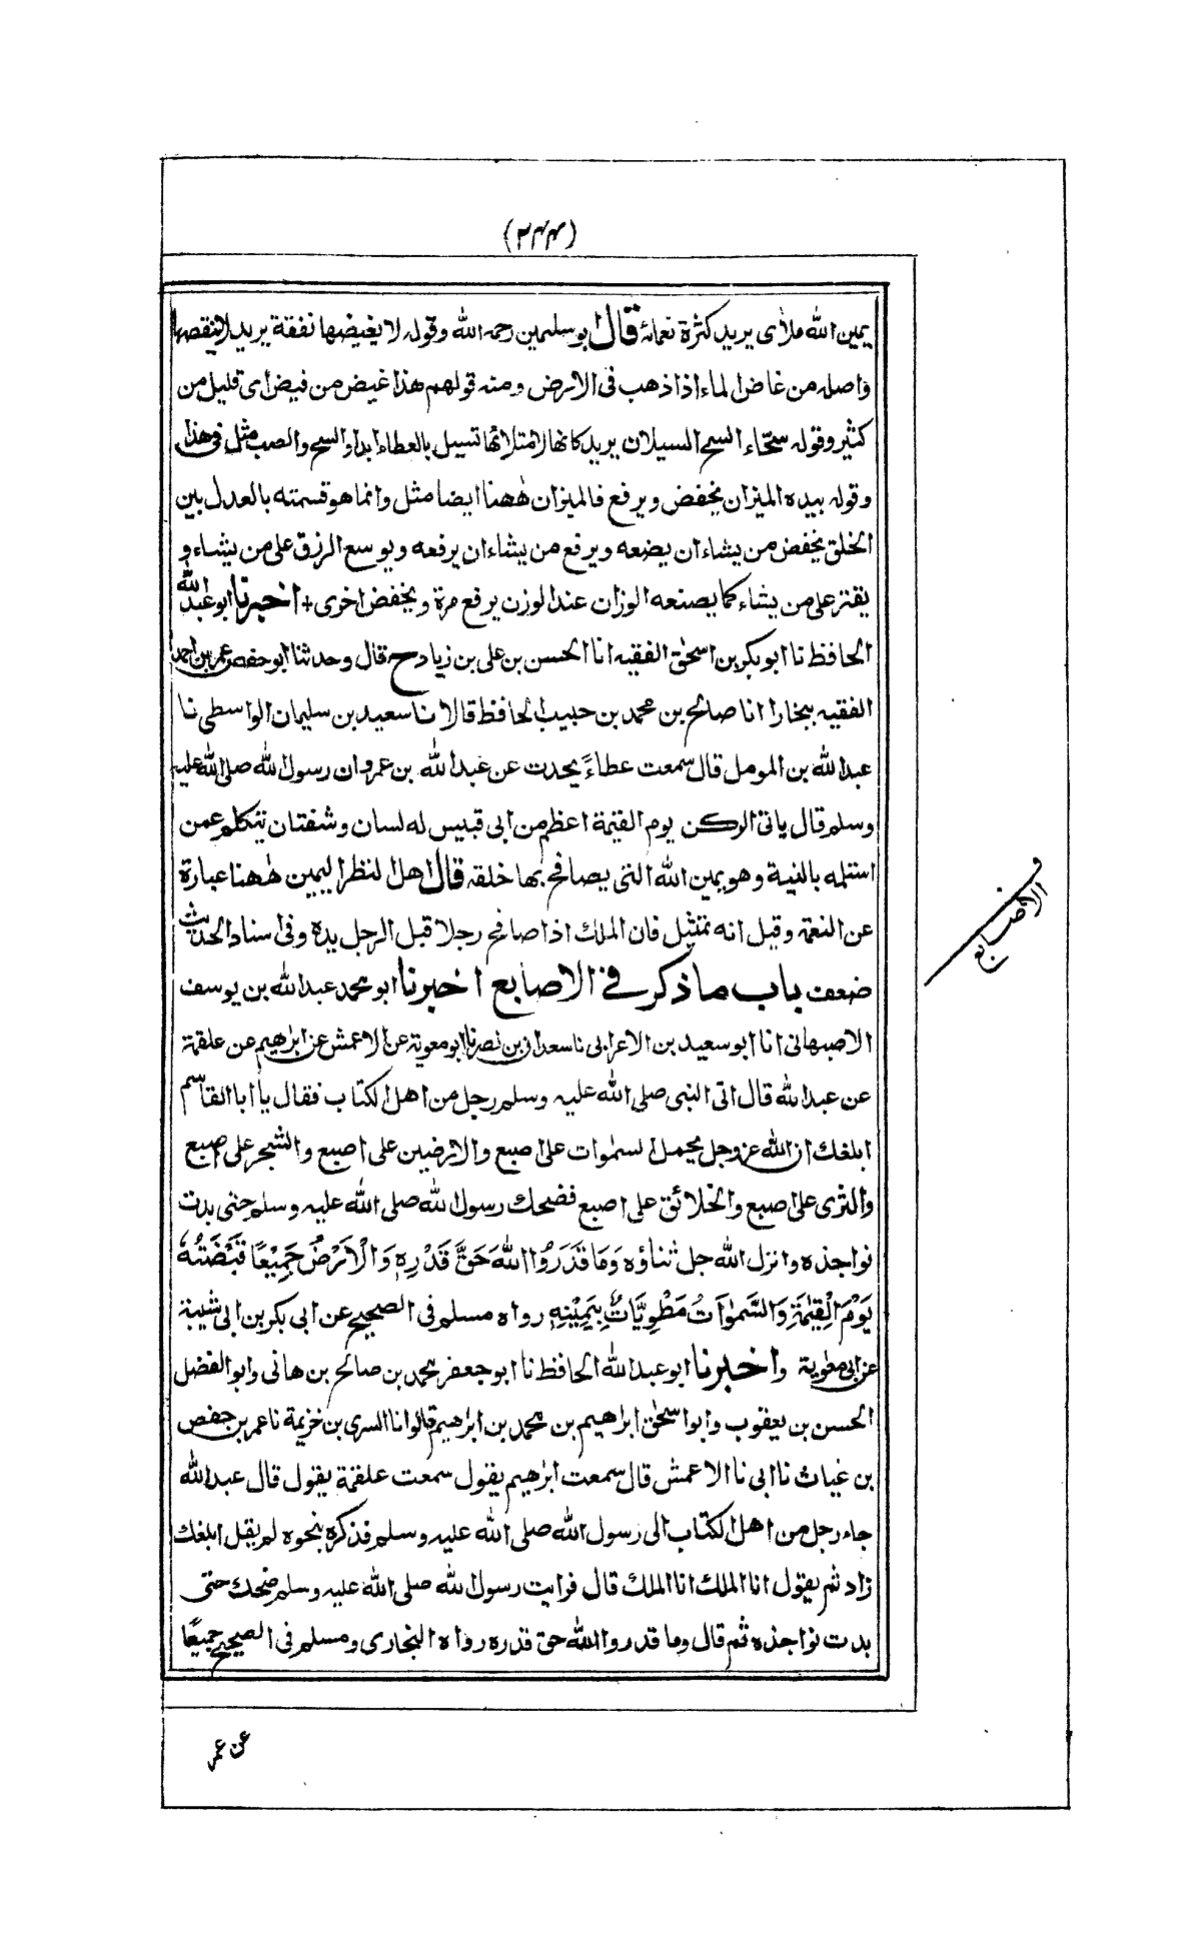 (٢٤٣)
يمين الله ملأى يريد كثرة نعمائه قال ابو سليمن رحمه الله وقوله لا يغيضها نفقة يريد لا ينقصها
واصله من غاض الماء اذا ذهب فى الارض ومنه قولهم هذا غيض من فيض اى قليل من
كثير وقوله سحّاء السح السيلان يريد كانها لامتلائها تسيل بالعطاء ابدا والسح والصب مثل فى هذا
وقوله بيده الميزان يخفض ويرفع فالميزان ههنا ايضا مثل وانما هو قسمته بالعدل بين
الخلق يخفض من يشاء ان يضعه ويرفع من يشاء ان يرفعه ويوسع الرزق على من يشاء و
يقتر على من يشاء كما يصنعه الوزان عند الوزن يرفع مرة ويخفض اخرى + اخبرنا ابو عبد الله
الحافظ نا ابو بكر بن اسحٰق الفقيه انا الحسن بن على بن زياد ح قال وحدثنا ابو حفص عمر بن احمد
الفقيه ببخارا انا صالح بن محمد بن حبيب الحافظ قالا نا سعيد بن سليمان الواسطى نا
عبد الله بن المومل قال سمعت عطاءً يحدث عن عبد الله بن عمرو ان رسول الله صلى الله عليه
وسلم قال ياتى الركن يوم القيٰمة اعظم من ابى قبيس له لسان وشفتان يتكلم عمن
استلمه بالنية وهو يمين الله التى يصافح بها خلقه قال اهل النظر اليمين ههنا عبارة
عن النعمة وقيل انه تمثيل فان الملك اذا صافح رجلا قبل الرجل يده وفى اسناد الحديث
ضعف باب ما ذكر فى الاصابع اخبرنا ابو محمد عبد الله بن يوسف
الاصبهانى انا ابو سعيد بن الاعرابى نا سعدان بن نصر نا ابو معوية عن الاعمش عن ابراهيم عن علقمة
عن عبد الله قال اتى النبى صلى الله عليه وسلم رجل من اهل الكتاب فقال يا ابا القاسم
ابلغك ان الله عز وجل يحمل السمٰوات على اصبع والارضين على اصبع والشجر على اصبع
والثرى على اصبع والخلائق على اصبع فضحك رسول الله صلى الله عليه وسلم حتى بدت
نواجذه وانزل الله جل ثناؤه وَمَا قَدَرُوا اللهَ حَقَّ قَدْرِهٖ وَالْاَرْضُ جَمِيْعًا قَبْضَتُهٗ
يَوْمَ الْقِيٰمَةِ وَالسَّمٰوَاتُ مَطْوِيَّاتٌ بِيَمِيْنِهٖ رواه مسلم فى الصحيح عن ابى بكر بن ابى شيبة
عن ابى معٰوية واخبرنا ابو عبد الله الحافظ نا ابو جعفر محمد بن صالح بن هانى وابو الفضل
الحسن بن يعقوب وابو اسحٰق ابراهيم بن محمد بن ابراهيم قالوا نا السرى بن خزيمة نا عمر بن حفص
بن غياث نا ابى نا الاعمش قال سمعت ابراهيم يقول سمعت علقمة يقول قال عبد الله
جاء رجل من اهل الكتاب الى رسول الله صلى الله عليه وسلم فذكره بنحوه لم يقل ابلغك
زاد ثم يقول انا الملك انا الملك قال فرايت رسول الله صلى الله عليه وسلم ضحك حتى
بدت نواجذه ثم قال وما قدروا الله حق قدره رواه البخارى ومسلم فى الصحيح جميعًا
عن عمر
فى الاصابع